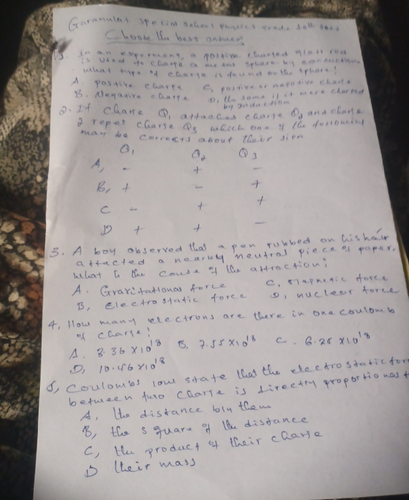 Garamulata special school physics grade 10th test
Choose the best answer
1. In an experiment, a positive charged glass rod
is used to charge a metal sphere by conduction
what type of charge is found on the sphere?
A. positive charge C. positive or negative charge
B. Negative charge D, the same as it were charged
by induction
2. If charge Q1 attracted charge Q2 and charge
2 repel charge Q3 which one of the following
may be corrects about their sign
Q1 Q2 Q3
A, - + -
B, + - +
C - + +
D + + -
3. A boy observed that a pen rubbed on his hair
attacted a nearly neutral piece of paper.
What is the cause of the attraction?
A. Gravitational force C. magnetic force
B, electrostatic force D, nuclear force
4, How many electrons are there in one coulomb
of charge?
A. 3.36×10^18 B 7.55×10^18 C. 6.25×10^18
D, 10.456×10^18
5, Coulombs low state that the electrostatic force
between two charge is directly proportional to
A, the distance b/n them
B, the square of the distance
C, the product of their charge
D their mass